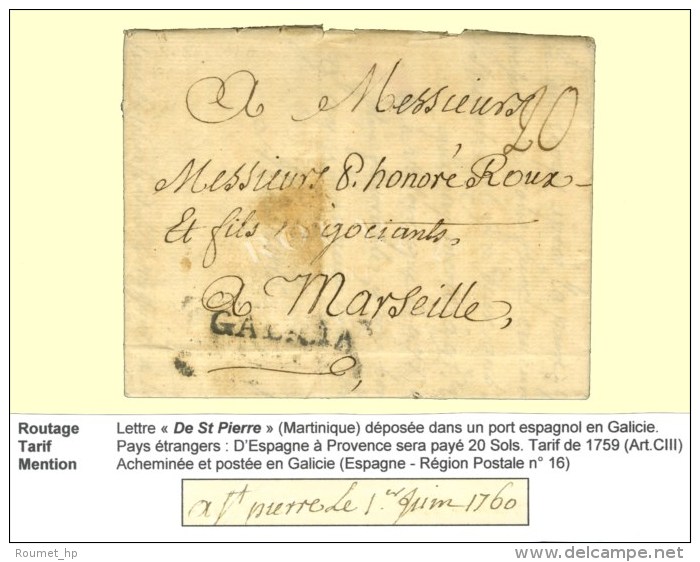 A Messieurs
20
Messieurs P. honoré Roux
Et fils Négociants,
A Marseille,
GALICIA
Routage Lettre « De St Pierre » (Martinique) déposée dans un port espagnol en Galicie.
Tarif Pays étrangers : D'Espagne à Provence sera payé 20 Sols. Tarif de 1759 (Art.CIII)
Mention Acheminée et postée en Galicie (Espagne - Région Postale n° 16)
a St pierre Le 1er Juin 1760
Roumet_hp
©delcampe.net